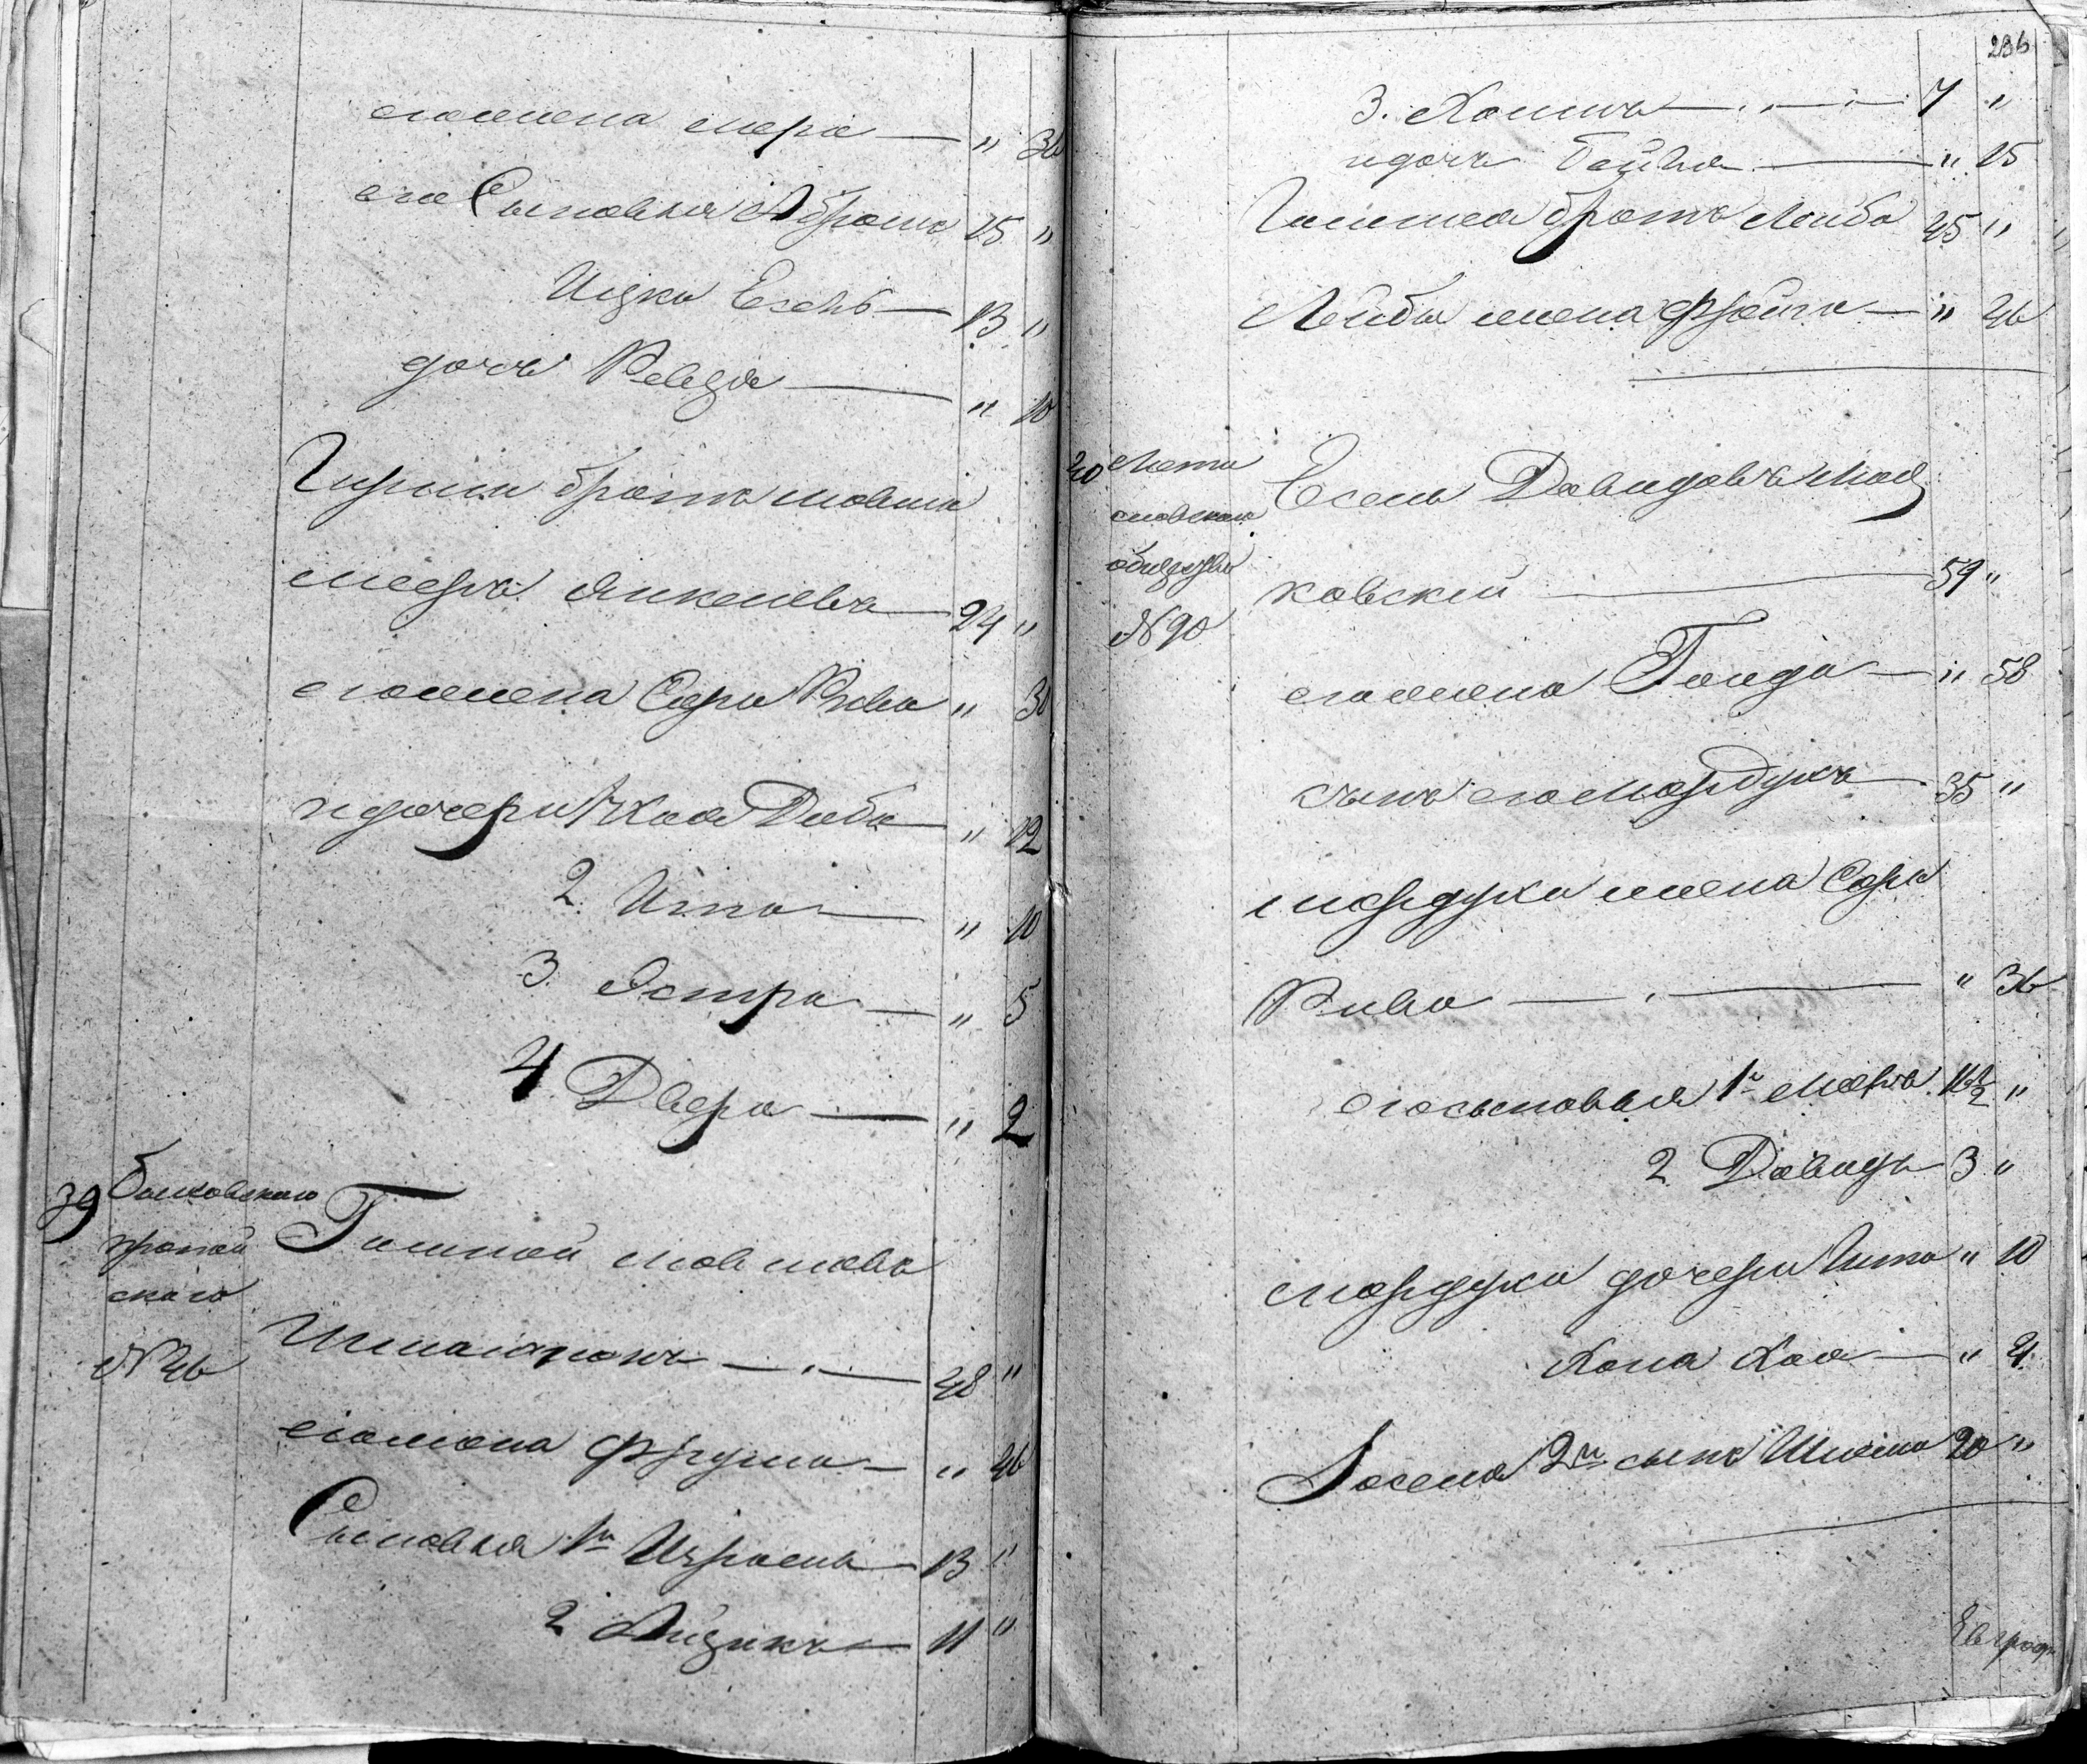 его жена Мера — " 36
его Сыновья Абрамъ 15 "
Ицко Есель — 13 "
дочь Ревза — " 10
Гирши братъ Мовша
Мееръ Янкелевъ — 24 "
его жена Сара Рива " 30
и дочери 1 Хая Диба — " 12
2. Ита — " 10
3. Эстра — " 5
4 Двера — " 2
39 Быховскаго Гимпой Мовшовъ
пропой
скаго
№ 46 — 48 "
его жена Фрума — " 46
Сыновья 1й Израель — 13 "
2 Айзикъ — 11 "
236
3. Хаимъ — 7 "
и дочь Бейла — " 15
братъ Лейба 45 "
Лейбы жена Фрейга — " 46
40 Мсти
славскаго
общества
№ 90
Есель Давидовъ Мал
ковскій — 59 "
его жена Голда — " 58
сынъ его Мордухъ 35 "
Мордуха жена Сара
Рива — " 36
его сыновья 1й Мееръ 11½ "
2 Давидъ 3 "
Мордуха дочери Гита " 10
Хана Хая — " 4
Іоселя 2й сынъ 20 "